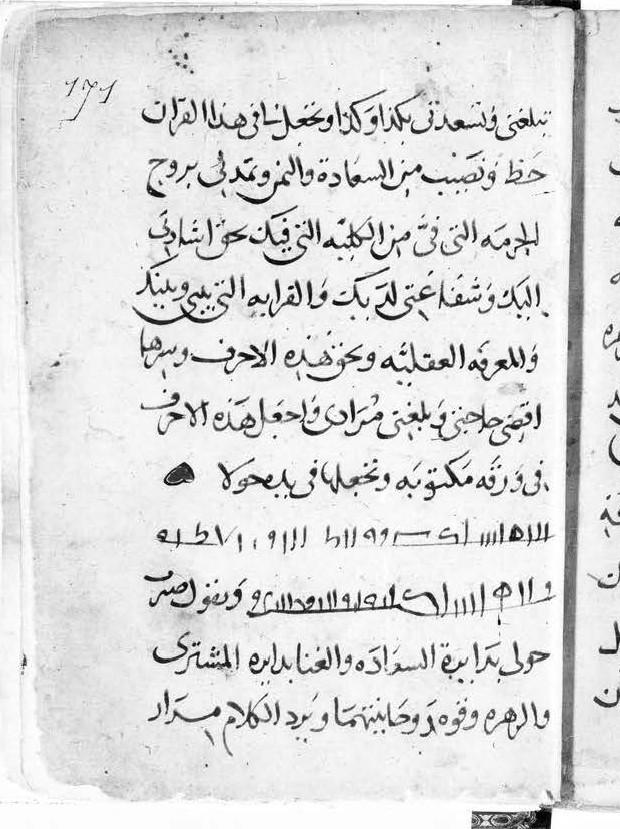 ١٧١
تبلغنى وتسعدنى بكذا وكذا وتجعل لنا فى هذا القران
حظ ونصيب من السعادة واليمن وتمدنى بروح
الحرمه التى فىَّ من الكليه التى فيك بحق اشارتى
اليك وشفاعتى لديك والقرابه التى بينى وبينك
والمعرفه العقليه وبحق هذه الاحرف وسرها
اقضى حاجتى وبلغنى مرادى واجعل هذه الاحرف
فى ورقه مكتوبه وتجعلها فى يدك
ويقول
حولى بدايرة السعاده والغنا بدايره المشترى
والزهره وقوه روحانيتهما ويرد الكلام مرار